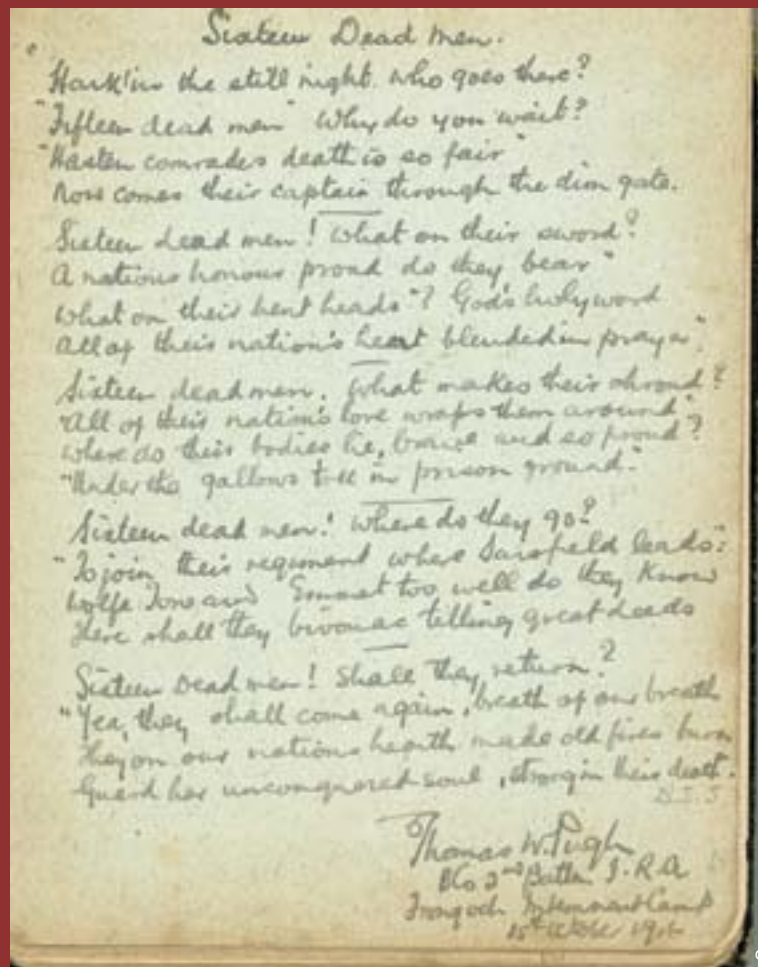 Sixteen Dead Men.
"Hark! in the still night. who goes there?
"Fifteen dead men" Why do you wait?
"Hasten comrades death is so fair"
Now comes their captain through the dim gate.
Sixteen dead men! What on their sword?
"A nations honour proud do they bear"
What on their bent heads"? God's holy word
All of their nation's heart blended in prayer".
Sixteen dead men. What makes their shroud?
"All of their nation's love wraps them around".
Where do their bodies lie, brave and so proud?
"Under the gallows tree in prison ground."
Sixteen dead men! Where do they go?
"To join their regiment where Sarsfield leads":
Wolfe Tone and Emmet too well do they Know
Here shall they bivouac telling great deeds
Sixteen Dead men! Shall they return?
"Yea, they shall come again, breath of our breath
They on our nations hearth made old fires burn
Guard her unconquered soul, strong in their death.
D.S.S
Thomas W. Pugh
B Co 2nd Batln I.R.A
Frongoch Internment Camp
15th October 1916